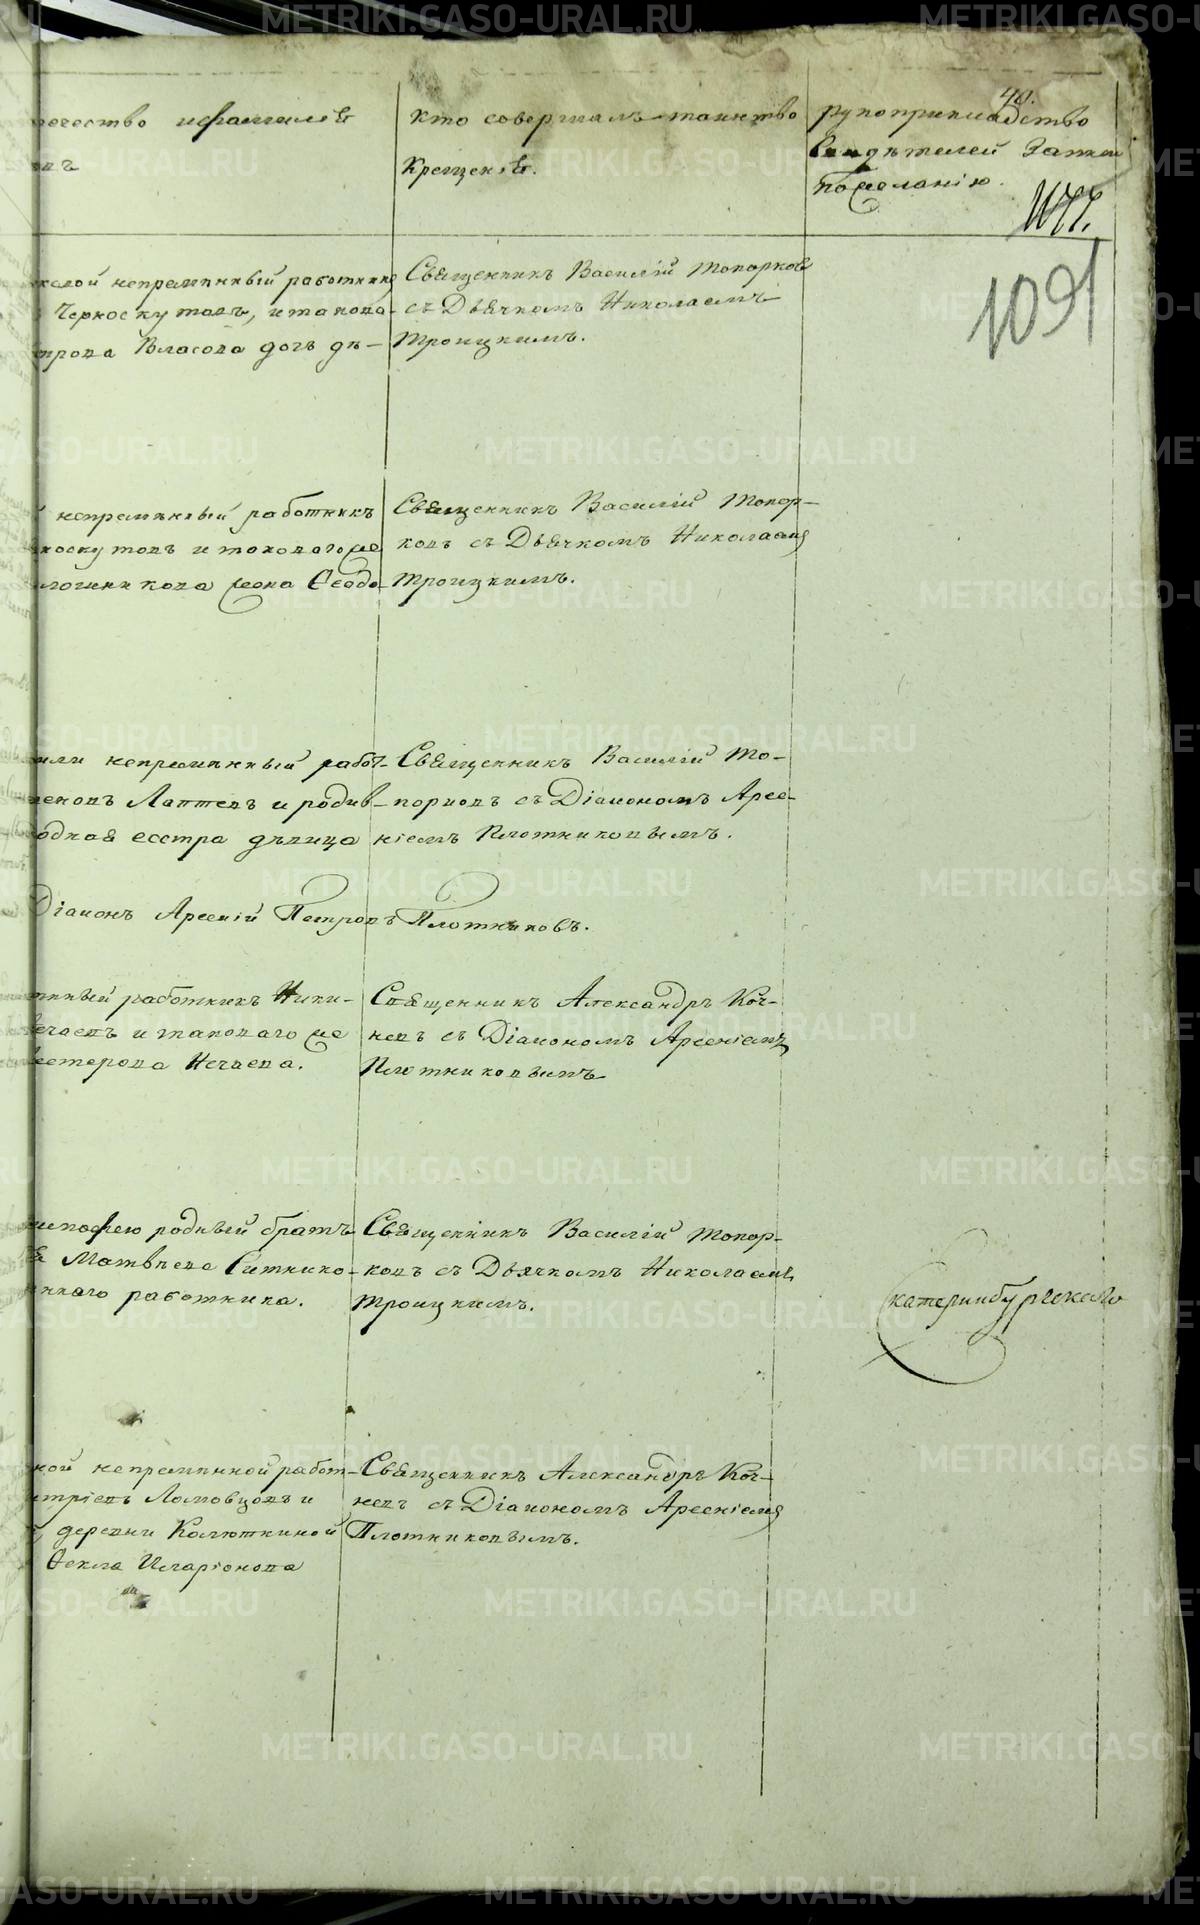 40.
течество ифамилiя
овъ
кто совершалъ таинство
Крещенiя.
рукоприкладство
Свидѣтелей Записи
пожеланiю.
1091
непремѣнный работникъ
Черноскутовъ, итакова-
трова Власова дочь дѣ-
Священникъ Василiй Топорковъ
съ Дьячкомъ Николаемъ
Троицкимъ.
непремѣнный работникъ
носкутовъ и таковагоже
логиникова жена Ѳеодо-
Священникъ Василiй Топор-
ковъ съ Дьячкомъ Николаемъ
Троицкимъ.
или непремѣнный работ-
Лаптевъ и родив-
одная сестра дѣвица
Священникъ Василiй То-
порковъ съ Дiакономъ Арсе-
нiемъ Плотниковымъ.
Дiаконъ Арсенiй Петровъ Плотниковъ.
нный работникъ Ники-
ечаевъ и таковаго же
естерова Нечаева.
Священникъ Александръ Коч-
невъ съ Дiакономъ Арсенiемъ
Плотниковымъ
родный братъ
я Матвѣева Ситнико-
ннаго работника.
Священникъ Василiй Топор-
ковъ съ Дьячкомъ Николаемъ
Троицкимъ.
Екатеринбургскаго
ной непремѣнной работ-
итрiевъ Ломовцовъ и
деревни Колюткиной
Ѳекла Иларiонова
Священникъ Александръ Коч-
невъ съ Дiакономъ Арсенiемъ
Плотниковымъ.
METRIKI.GASO-URAL.RU